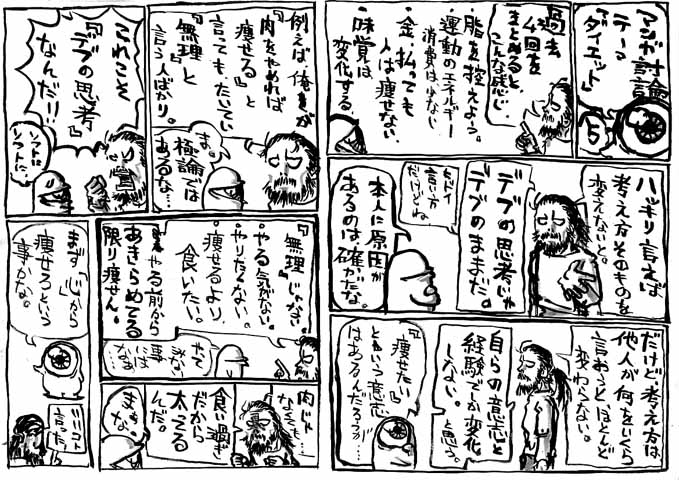 マンガ討論
テーマ
『ダイエット』
5
過去
4回を
まとめると
こんな感じ。
・脂を控えよう。
・運動のエネルギー
消費は少ない
・金、払っても
人は痩せない
・味覚は
変化する
ハッキリ言えば
考え方そのものを
変えないと。
デブの思考じゃ
デブのままだ。
ヒドイ
言い方
だけどね
本人に原因が
あるのは確かだな。
だけど考え方は
他人が何をいくら
言おうとほとんど
変わらない。
自らの意志と
経験でしか変化
しない。
と思う。
『痩せたい』
という意志
はあるんだろうが…
例えば俺達が
『肉をやめれば
痩せる』と
言ってもたいてい
『無理』と
言う人ばかり。
ま。
極論では
あるな…
これこそ
『デブの思考』
なんだ!!
ソフトに
ソフトに。
『無理』じゃない。
やる気がない。
やりたくない。
痩せるより
食いたい。
やる前から
あきらめてる
限り痩せん。
やって
みなきゃ
事には
肉じゃ
なくても…
食い過ぎ
だから
太ってる
んだ。
まぁ
な。
まず『心』から
痩せろという
事かな。
いいコト
言った。